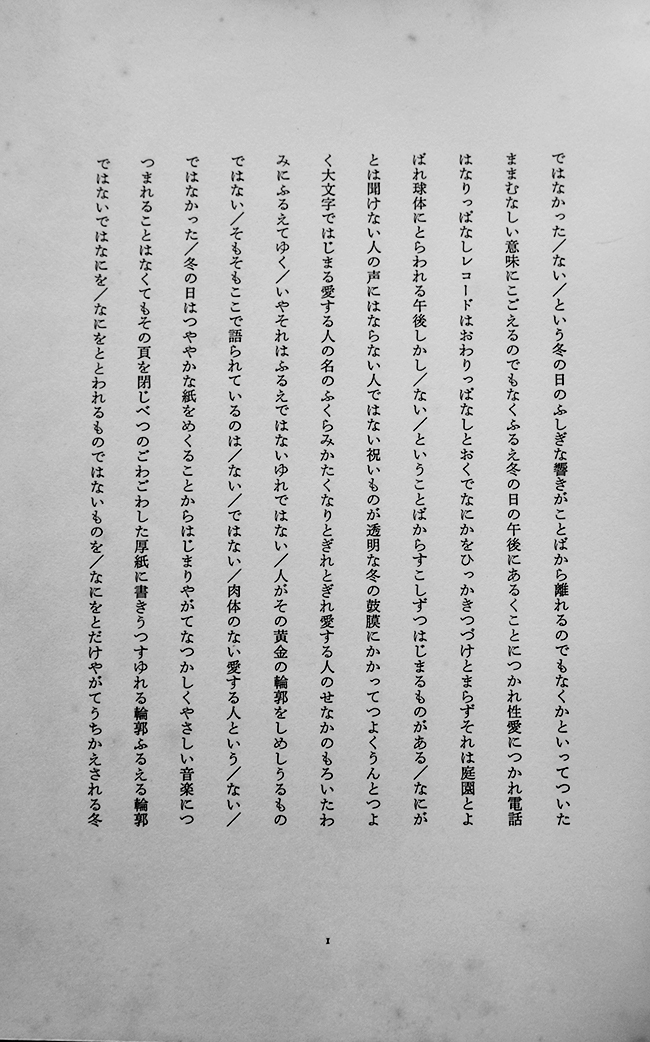 ではなかった／ない／という冬の日のふしぎな響きがことばから離れるのでもなくかといってついた
ままむなしい意味にこごえるのでもなくふるえ冬の日の午後にあるくことにつかれ性愛につかれ電話
はなりっぱなしレコードはおわりっぱなしとおくでなにかをひっかきつづけとまらずそれは庭園とよ
ばれ球体にとらわれる午後しかし／ない／ということばからすこしずつはじまるものがある／なにが
とは聞けない人の声にはならない人ではない祝いものが透明な冬の鼓膜にかかってつよくうんとつよ
く大文字ではじまる愛する人の名のふくらみかたくなりとぎれとぎれ愛する人のせなかのもろいたわ
みにふるえてゆく／いやそれはふるえではないゆれではない／人がその黄金の輪郭をしめしうるもの
ではない／そもそもここで語られているのは／ない／ではない／肉体のない愛する人という／ない／
ではなかった／冬の日はつややかな紙をめくることからはじまりやがてなつかしくやさしい音楽につ
つまれることはなくてもその頁を閉じべつのごわごわした厚紙に書きうつすゆれる輪郭ふるえる輪郭
ではないではなにを／なにをととわれるものではないものを／なにをとだけやがてうちかえされる冬
1